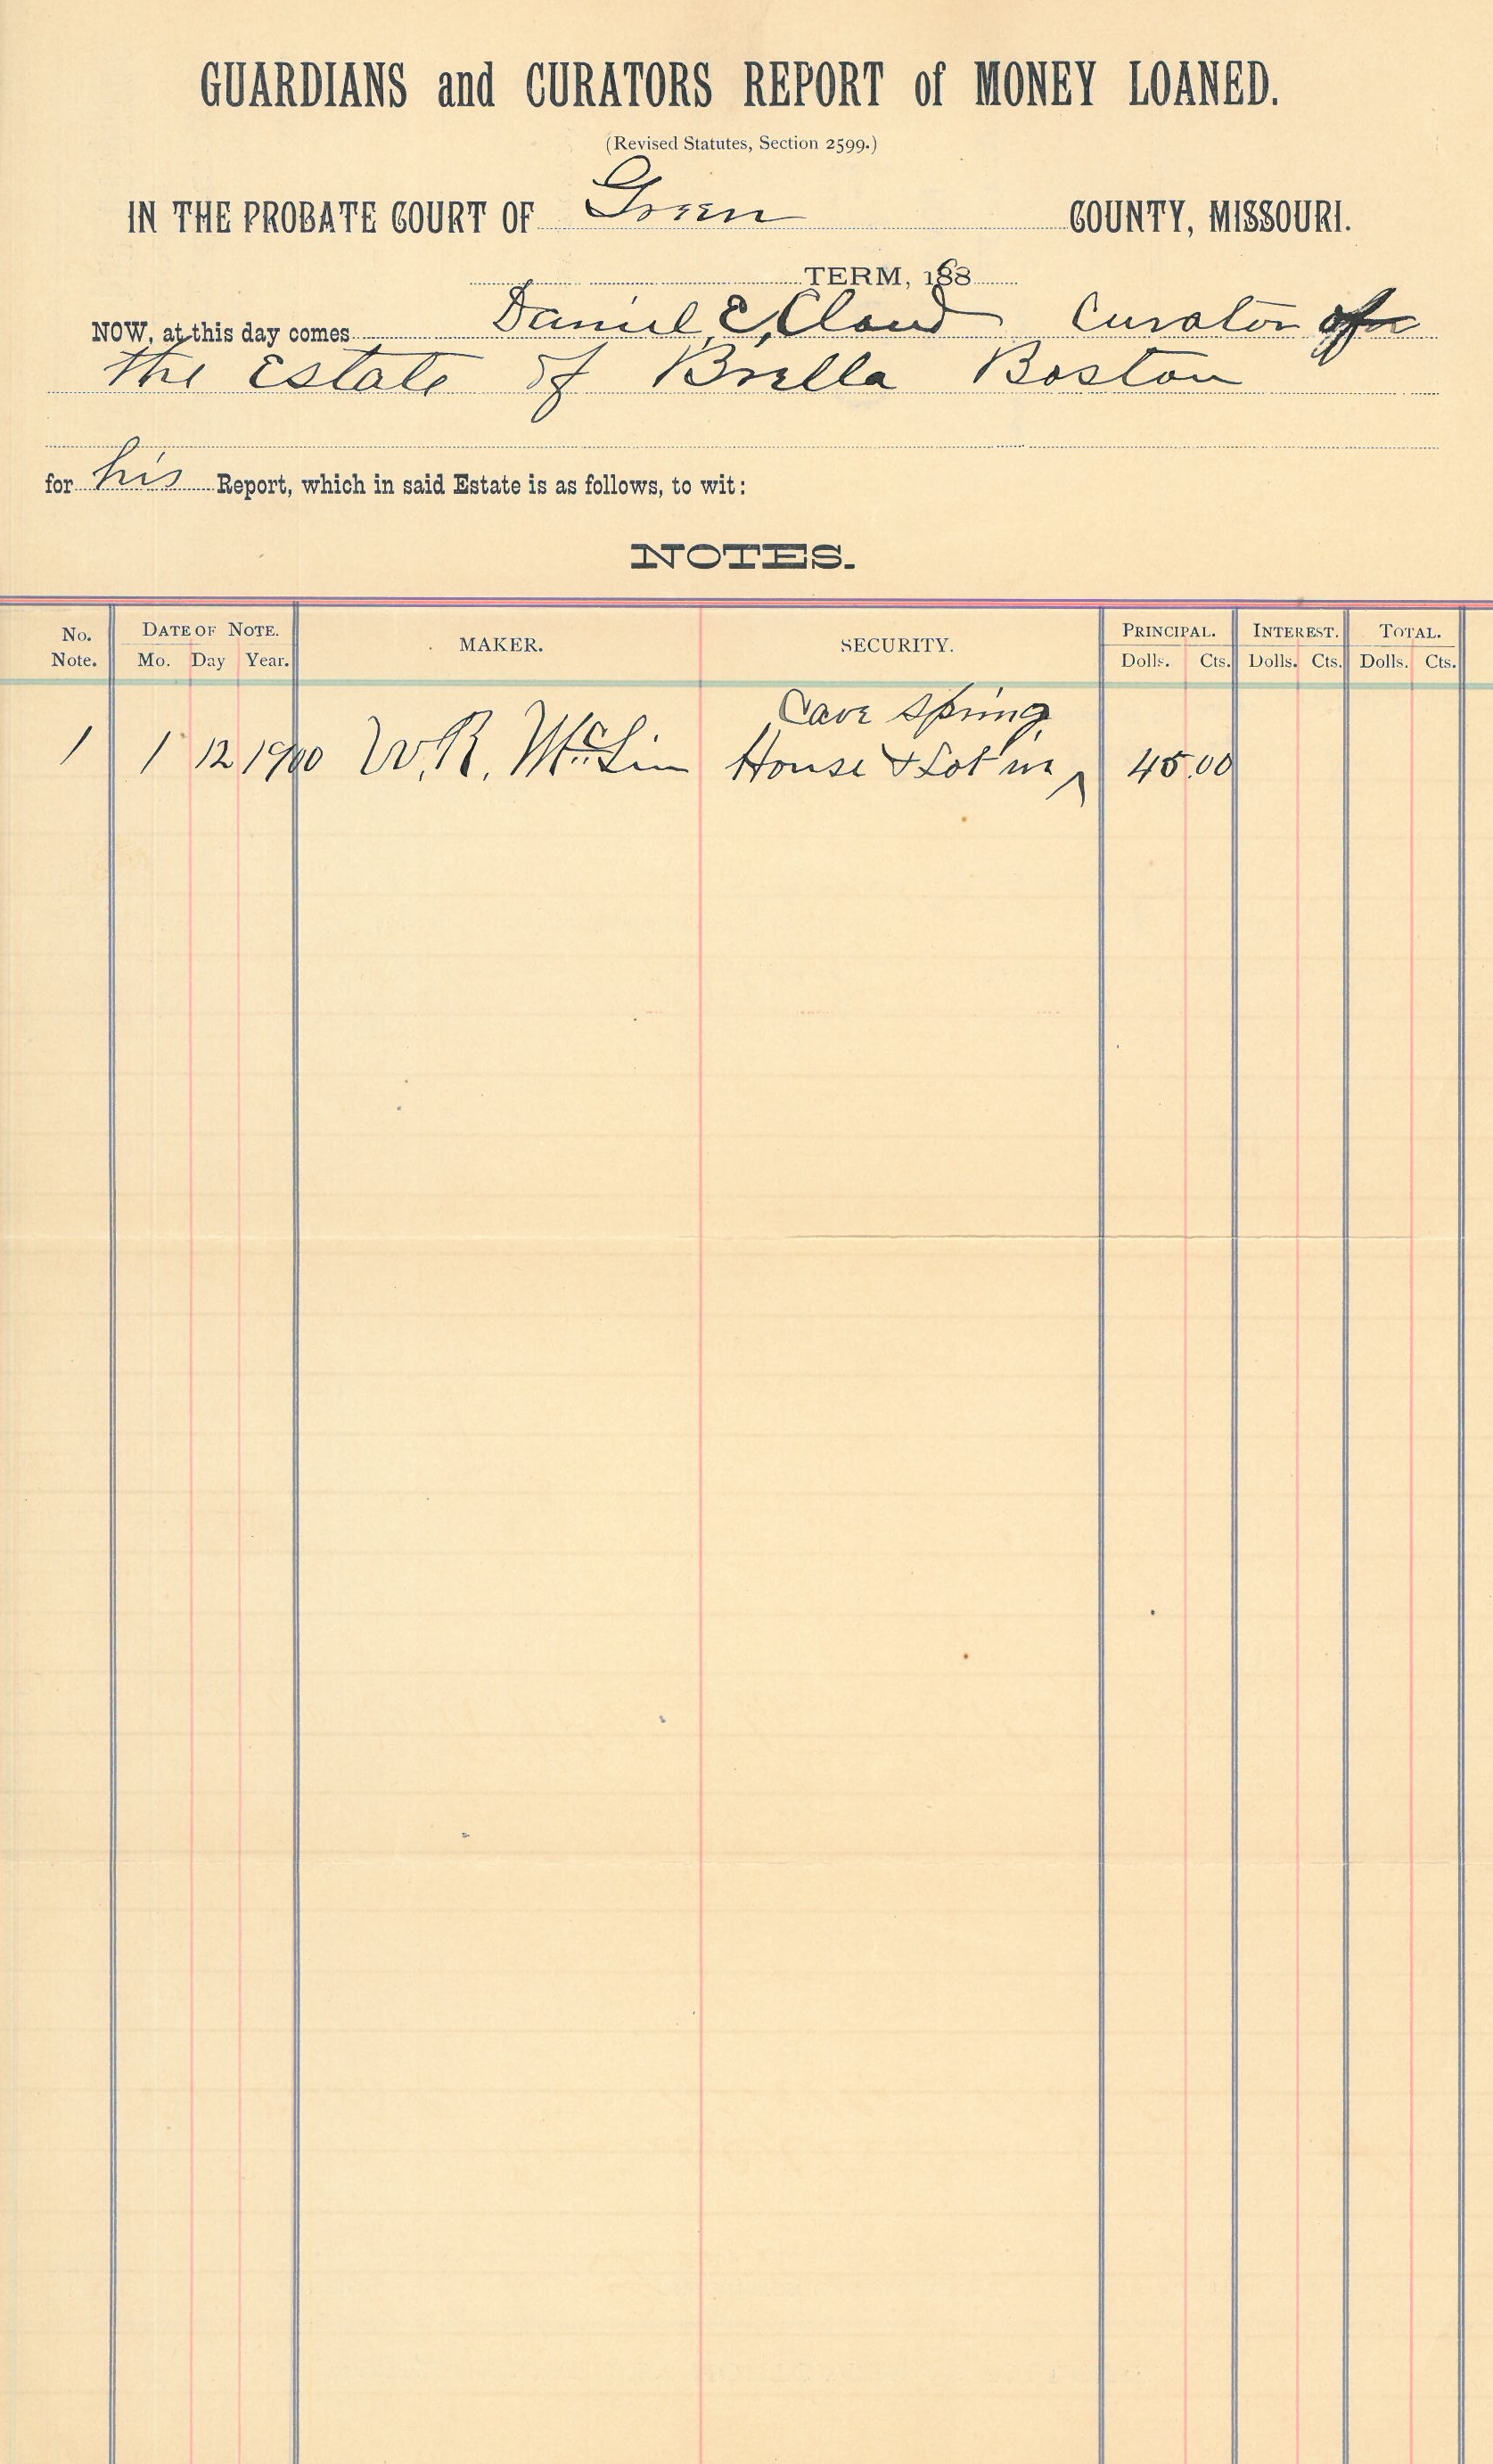 GUARDIANS and CURATORS REPORT of MONEY LOANED.
(Revised Statutes, Section 2599.)
IN THE PROBATE COURT OF Green COUNTY, MISSOURI.
TERM, 188
NOW, at this day comes Daniel E. Cloud Curator of
the Estate of Brella Boston
for his Report, which in said Estate is as follows, to wit:
NOTES.
No. Note. DATE OF NOTE. Mo. Day Year. MAKER. SECURITY. PRINCIPAL. Dolls. Cts. INTEREST. Dolls. Cts. TOTAL. Dolls. Cts.
Cave Spring
1 1 12 1900 W. R. McLin House & Lot in 45.00